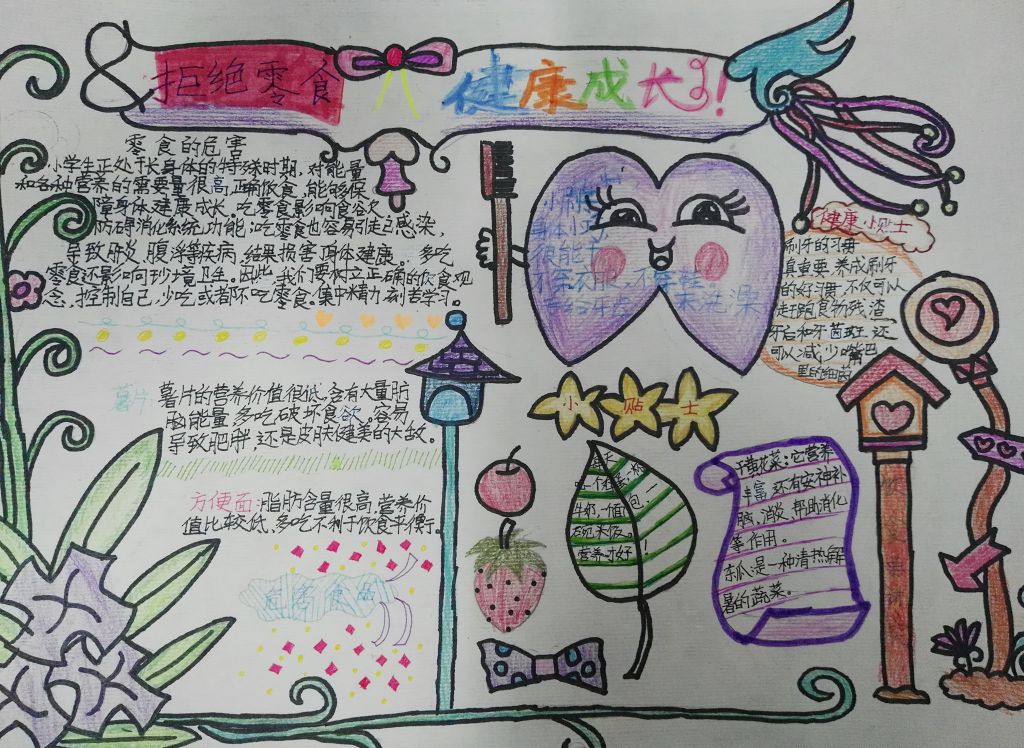 拒绝零食
健康成长!
零食的危害
小学生正处于长身体的特殊时期，对能量
和各种营养的需要量很高正确饮食，能够保
障身体建康成长。吃零食影响食谷欠
防碍消化系统功能；吃零食也容易引走已感染，
导致肝炎，腹泻等疾病，结果损害身体建康。多吃
零食还影响环境卫生。因此，我们要树立正确的饮食观
念，控制自己，少吃或者不吃零食。集中精力，刻苦学习。
薯片：薯片的营养价值很低，含有大量脂
肪能量多吃破坏食欲，容易
导致肥胖，还是皮肤健美的大敌。
方便面：脂肪含量很高，营养价
值比较低，多吃不利于饮食平衡。
身体小卫
很能干
不穿衣服，不穿鞋
来洗澡
健康小贴士
刷牙的习惯
真重要，养成刷牙
的好习惯，不仅可以
赶跑食物残渣
牙石和牙菌斑，还
可以减少嘴巴
里的细菌
小贴士
牛奶一个面包，一
碗米饭。
营养才好!
干黄花菜：它营养
丰富，还有安神补
脑、消炎、帮助消化
等作用。
东瓜：是一种清热解
暑的蔬菜。